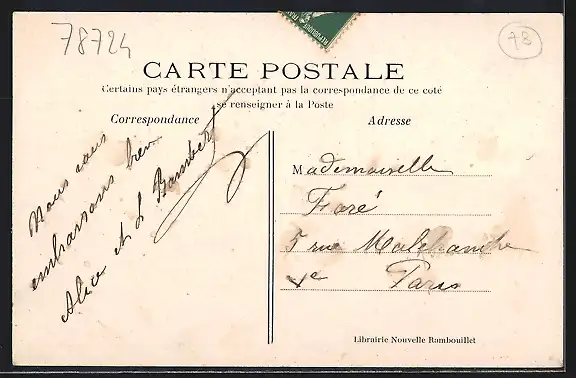 78724
78
CARTE POSTALE
Certains pays étrangers n'acceptant pas la correspondance de ce coté
se renseigner à la Poste
Correspondance
Adresse
Nous vous
embrassons bien
Alice et L Bombert
Mademoiselle
Foré
5 rue Malebranche
Ve Paris
Librairie Nouvelle Rambouillet